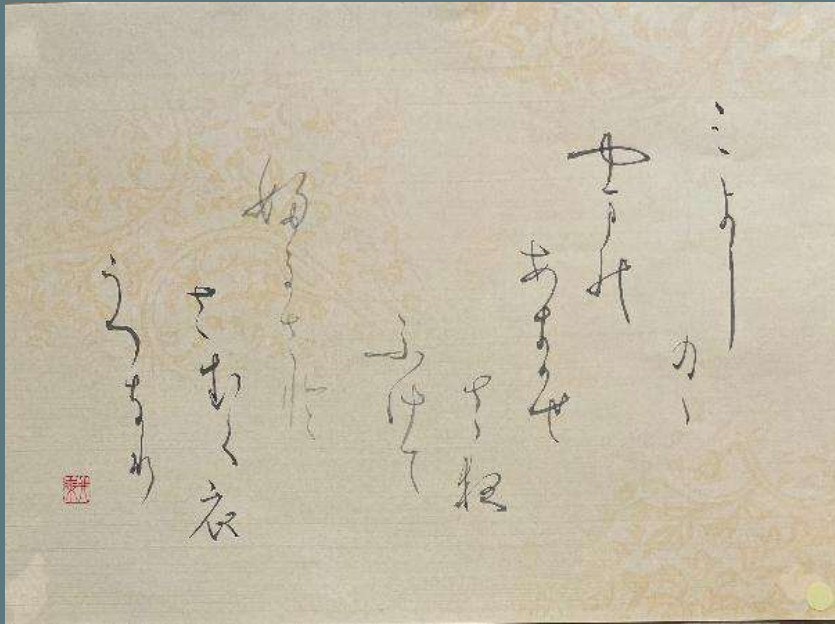 三よし
のゝ
やま能
あきかせ
さ夜
ふけて
婦るさと
さむく衣
うつなり